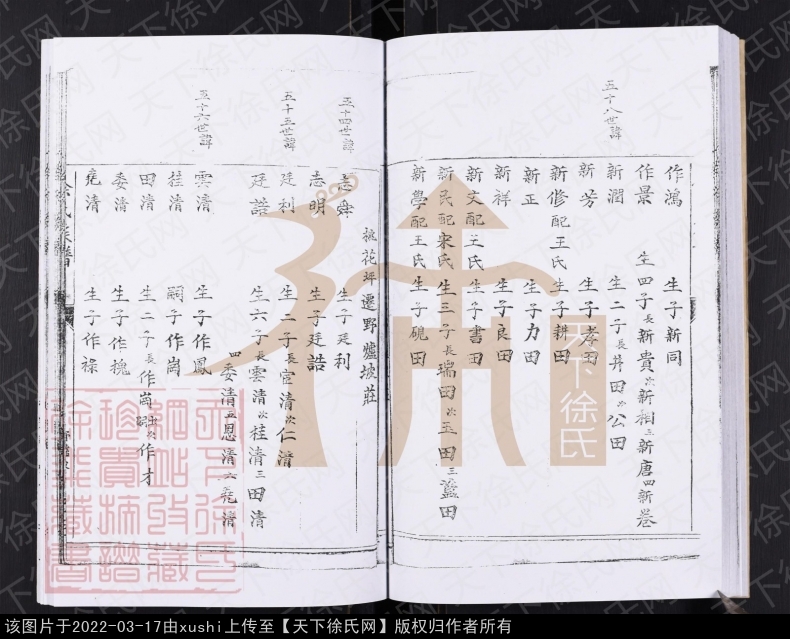 作鴻 生子新同
作景 生四子長新貴次新相三新唐四新卷
新潤 生二子長井田次公田
五十八世諱
新芳 生子孝田
新修配王氏 生子耕田
新正 生子力田
新祥 生子良田
新文配王氏 生子書田
新民配宋氏 生三子長瑞田次玉田三藍田
新學配王氏 生子硯田
桃花坪遷野爐坡莊
五十四世諱
志舜 生子廷利
志明 生子廷誥
五十五世諱
廷利 生二子長宣清次仁清
廷誥 生六子長雲清次桂清三田清
四委清五恩清六堯清
五十六世諱
雲清 生子作鳳
桂清 嗣子作崗
田清 生二子長作崗出嗣次作才
委清 生子作槐
堯清 生子作祿
徐氏族譜
天下徐氏
天下徐氏网
该图片于2022-03-17由xushi上传至【天下徐氏网】版权归作者所有